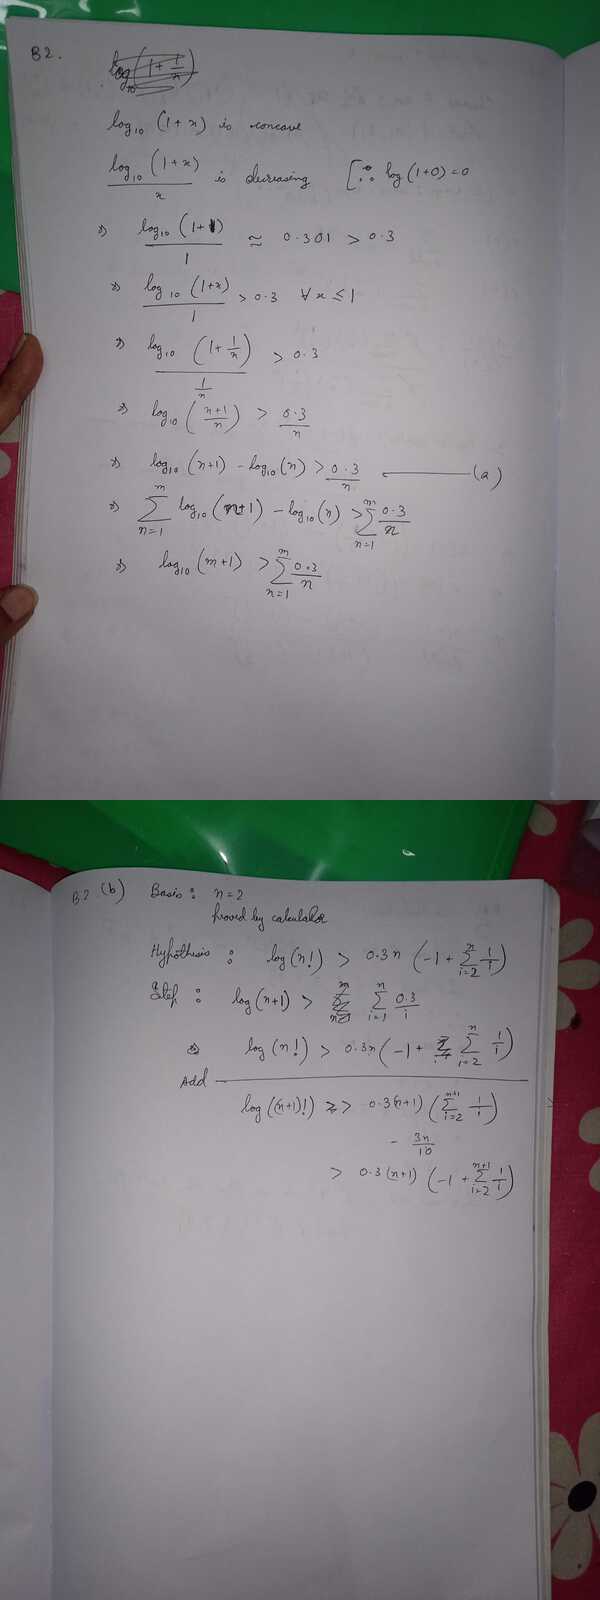 B2.
log₁₀(1+x) is concave
log₁₀(1+x)/x is decreasing [∵ log(1+0)=0
⇒ log₁₀(1+1)/1 ≃ 0.301 > 0.3
⇒ log₁₀(1+x)/1 > 0.3 ∀ x ≤ 1
⇒ log₁₀(1+1/n)/(1/n) > 0.3
⇒ log₁₀((n+1)/n) > 0.3/n
⇒ log₁₀(n+1) - log₁₀(n) > 0.3/n ——— (a)
⇒ ∑_{n=1}^{m} log₁₀(n+1) - log₁₀(n) > ∑_{n=1}^{m} 0.3/n
⇒ log₁₀(m+1) > ∑_{n=1}^{m} 0.3/n
B2. (b) Basis : n=2
Proved by calculator
Hypothesis : log(n!) > 0.3n (-1 + ∑_{i=2}^{n} 1/i)
Step : log(n+1) > ∑_{i=1}^{n} 0.3/i
log(n!) > 0.3n (-1 + ∑_{i=2}^{n} 1/i)
Add
log((n+1)!) > 0.3(n+1) (∑_{i=2}^{n+1} 1/i)
- 3n/10
> 0.3(n+1) (-1 + ∑_{i=2}^{n+1} 1/i)